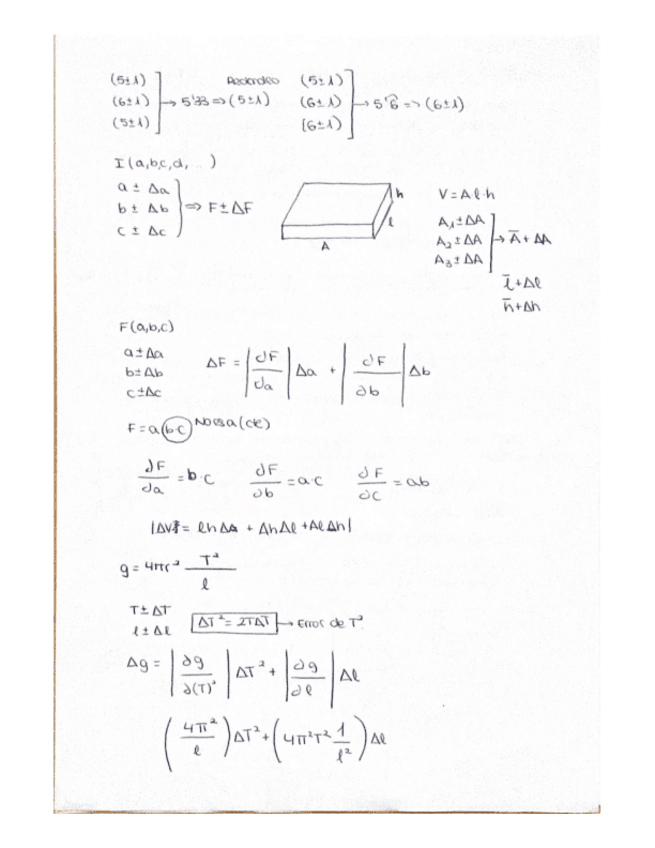 (5±1)
(6±1) → 5'33 => (5±1)
(5±1)
Redondeo
(5±1)
(6±1) → 5'6̂ => (6±1)
(6±1)
I(a,b,c,d,...)
a ± Δa
b ± Δb => F±ΔF
c ± Δc
h
l
A
V=Al·h
A₁±ΔA
A₂±ΔA → A̅+ΔA
A₃±ΔA
l̅+Δl
h̅+Δh
F(a,b,c)
a±Δa
b±Δb
c±Δc
ΔF = |∂F/∂a| Δa + |∂F/∂b| Δb
F=a(b·c) (cte)
∂F/∂a = b·c ∂F/∂b = a·c ∂F/∂c = ab
|ΔV|= lhΔA + AhΔl + AlΔh|
g = 4π² T²/l
T±ΔT
l±Δl
ΔT² = 2TΔT → Error de T²
Δg = |∂g/∂(T)²| ΔT² + |∂g/∂l| Δl
(4π²/l) ΔT² + (4π²T² 1/l²) Δl